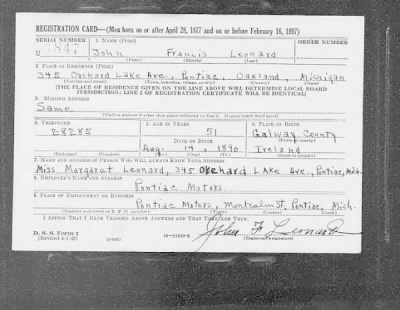 REGISTRATION CARD—(Men born on or after April 28, 1877 and on or before February 16, 1897)
SERIAL NUMBER 1. NAME (Print) ORDER NUMBER
U 1847 John Francis Leonard
(First) (Middle) (Last)
2. PLACE OF RESIDENCE (Print)
345 Orchard Lake Ave., Pontiac, Oakland, Michigan
(Number and street) (Town, township, village, or city) (County) (State)
[THE PLACE OF RESIDENCE GIVEN ON THE LINE ABOVE WILL DETERMINE LOCAL BOARD
JURISDICTION; LINE 2 OF REGISTRATION CERTIFICATE WILL BE IDENTICAL]
3. MAILING ADDRESS
Same
[Mailing address if other than place indicated on line 2. If same insert word same]
4. TELEPHONE 5. AGE IN YEARS 6. PLACE OF BIRTH
28285 51 Galway County
DATE OF BIRTH (Town or county)
Aug. 14, 1890 Ireland
(Exchange) (Number) (Mo.) (Day) (Yr.) (State or country)
7. NAME AND ADDRESS OF PERSON WHO WILL ALWAYS KNOW YOUR ADDRESS
Miss Margaret Leonard, 345 Orchard Lake Ave., Pontiac, Mich.
8. EMPLOYER'S NAME AND ADDRESS
Pontiac Motors
9. PLACE OF EMPLOYMENT OR BUSINESS
Pontiac Motors, Montcalm St, Pontiac, Mich.
(Number and street or R. F. D. number) (Town) (County) (State)
I AFFIRM THAT I HAVE VERIFIED ABOVE ANSWERS AND THAT THEY ARE TRUE.
D. S. S. Form 1
(Revised 4-1-42) (over)
John F Leonard
(Registrant's signature)